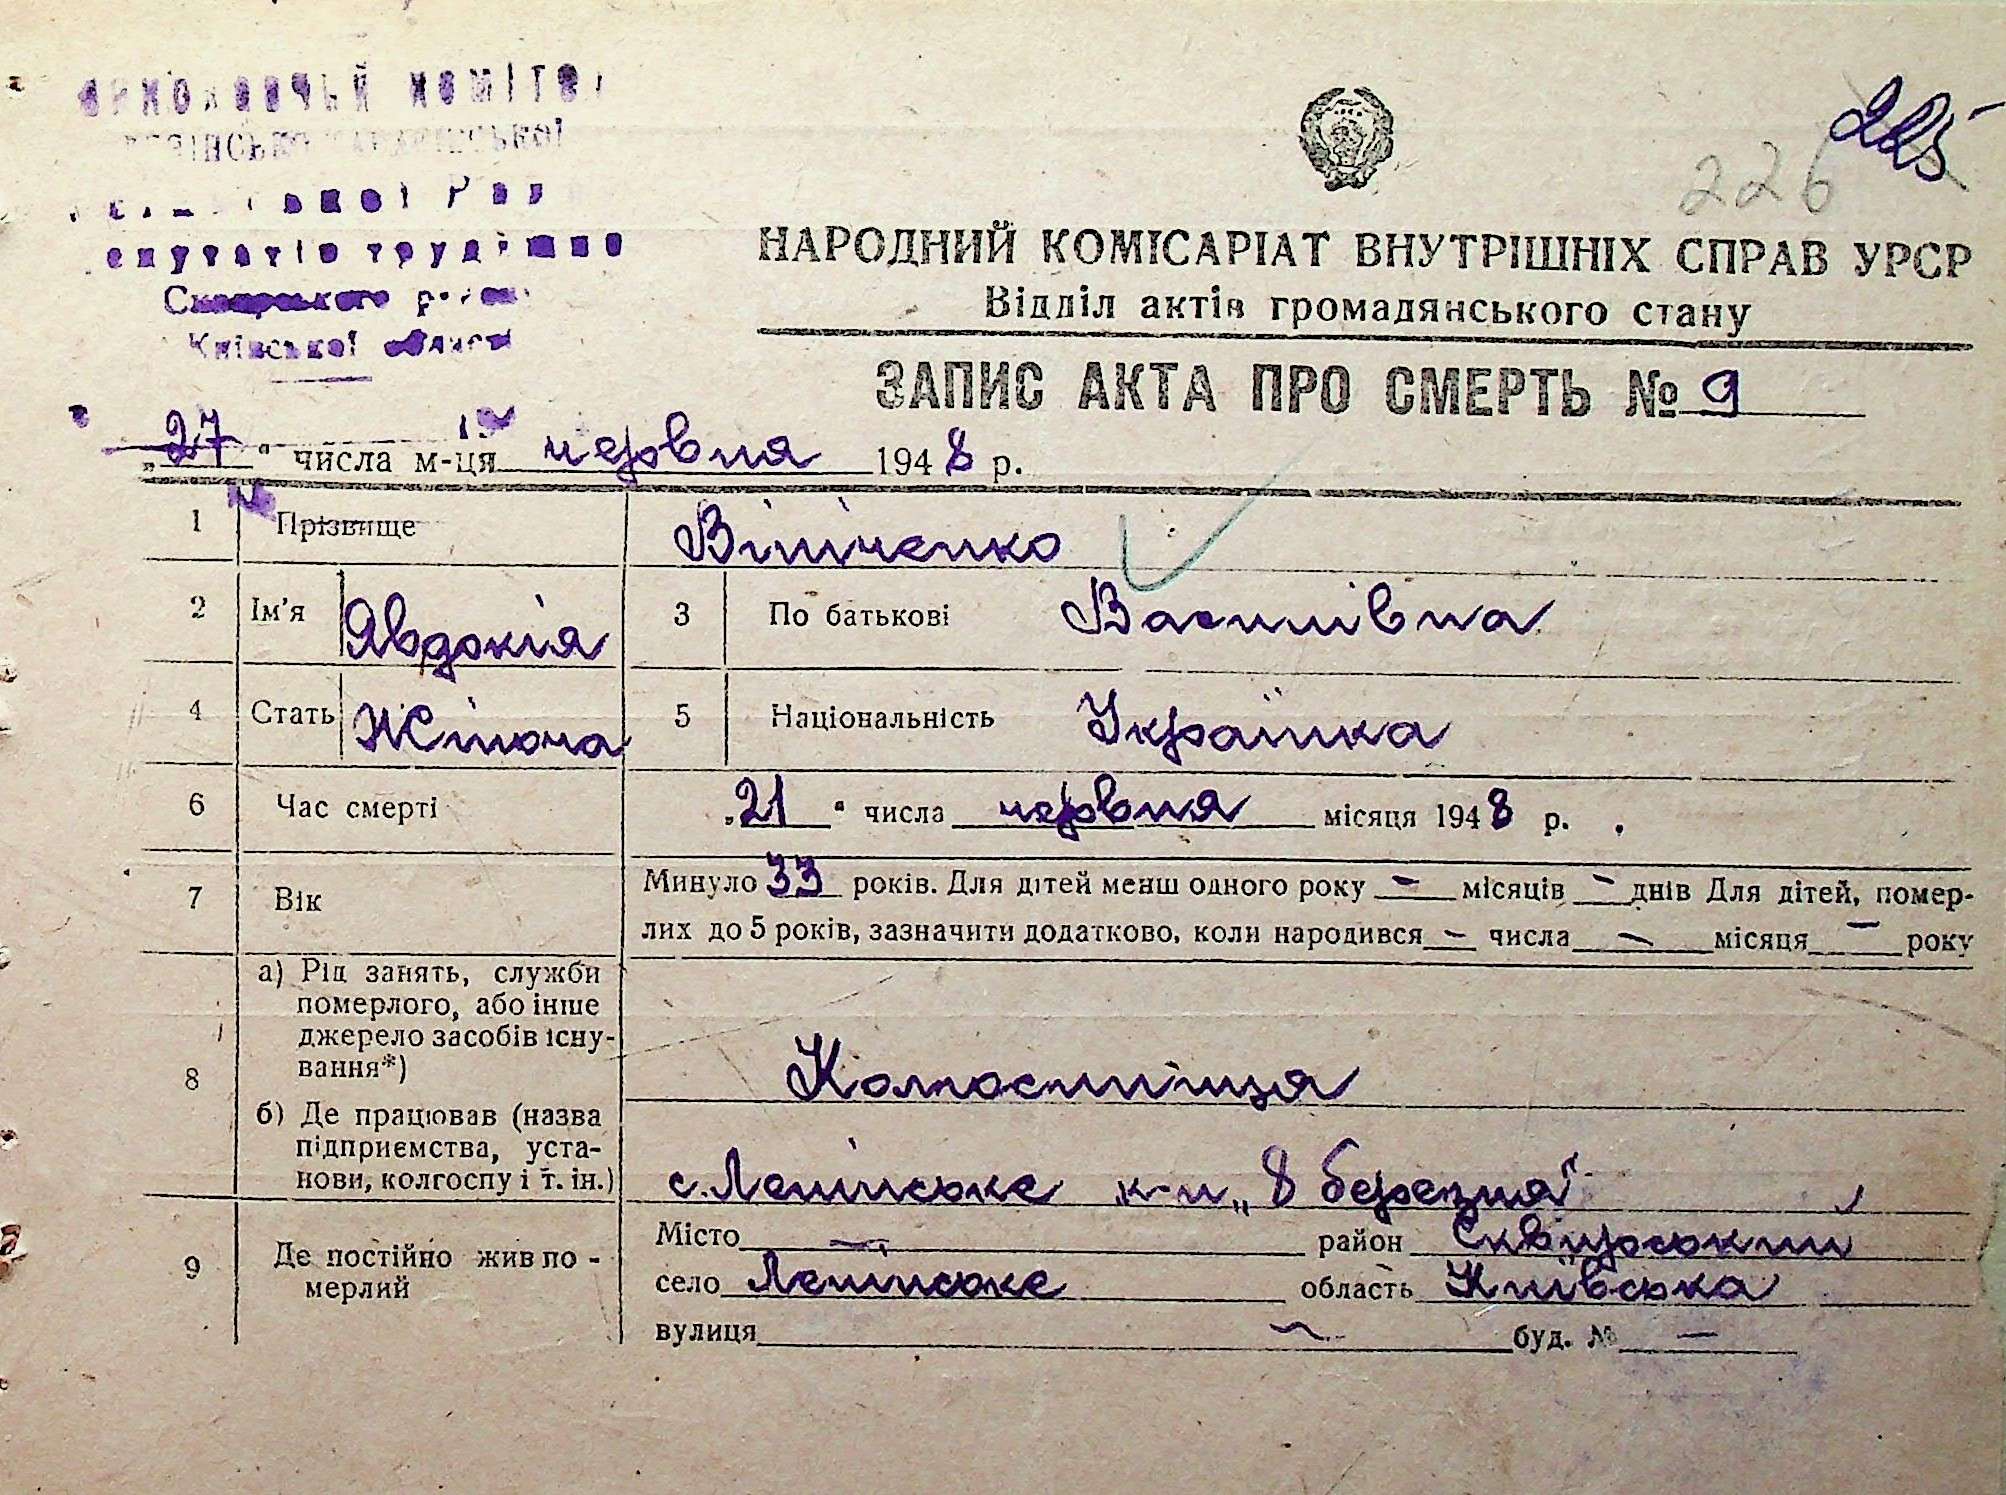 комітет
депутатів трудящих
Сквирського району
Київської області
225
226
НАРОДНИЙ КОМІСАРІАТ ВНУТРІШНІХ СПРАВ УРСР
Відділ актів громадянського стану
ЗАПИС АКТА ПРО СМЕРТЬ № 9
„27“ числа м-ця червня 1948 р.
1 Прізвище Вініченко
2 Ім'я Явдокія 3 По батькові Василівна
4 Стать Жіноча 5 Національність Українка
6 Час смерті „21“ числа червня місяця 1948 р.
7 Вік Минуло 33 років. Для дітей менш одного року — місяців — днів Для дітей, помер-
лих до 5 років, зазначити додатково, коли народився — числа — місяця — року
8 а) Рід занять, служби
померлого, або інше
джерело засобів існу-
вання*)
Колгоспниця
б) Де працював (назва
підприємства, уста-
нови, колгоспу і т. ін.)
с. Ленінське к-п „8 березня“
9 Де постійно жив по-
мерлий
Місто — район Сквирський
село Ленінське область Київська
вулиця — буд. № —